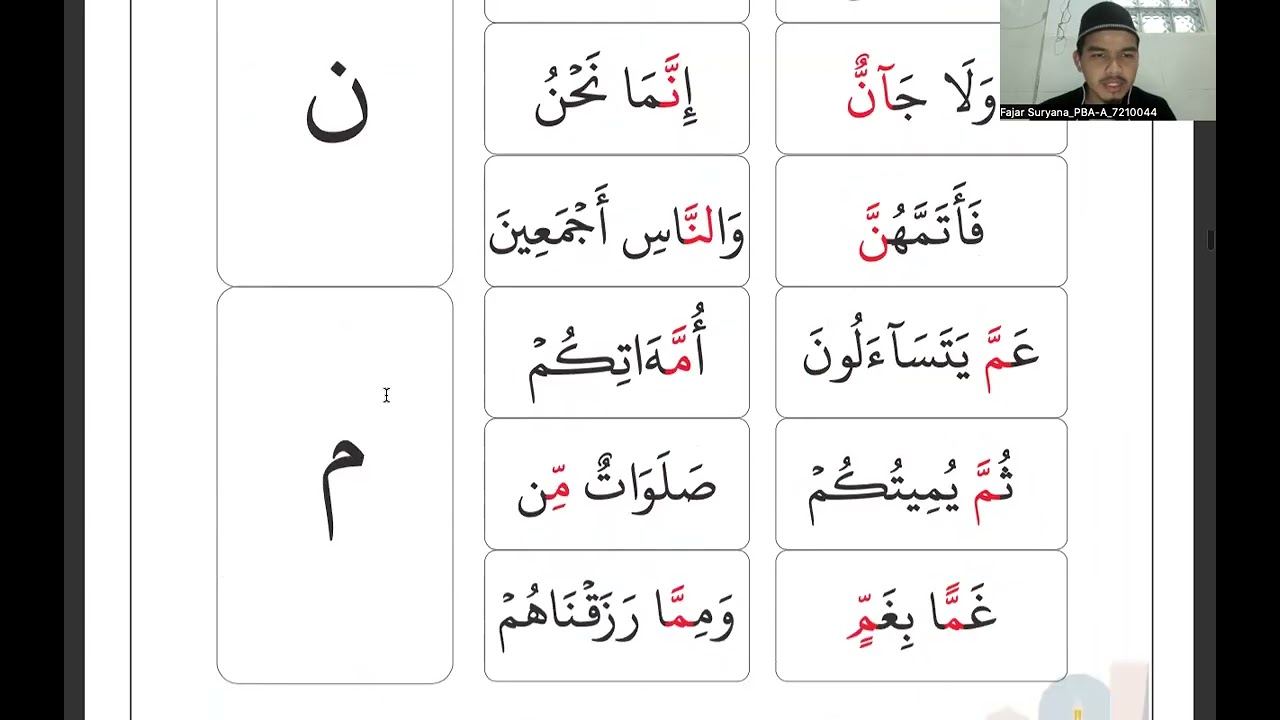 Fajar Suryana_PBA-A_7210044
وَلَا جَآنٌّ
إِنَّمَا نَحْنُ
ن
فَأَتَمَّهُنَّ
وَالنَّاسِ أَجْمَعِينَ
عَمَّ يَتَسَآءَلُونَ
أُمَّهَاتِكُمْ
م
ثُمَّ يُمِيتُكُمْ
صَلَوَاتٌ مِّن
غَمًّا بِغَمٍّ
وَمِمَّا رَزَقْنَاهُمْ